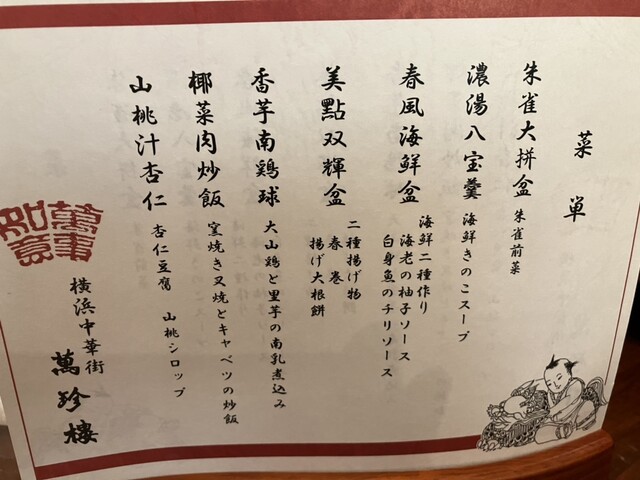 菜単
朱雀大拼盆
朱雀前菜
濃湯八宝羹
海鮮きのこスープ
春風海鮮盒
海鮮二種作り
海老の柚子ソース
白身魚のチリソース
美點双輝盒
二種揚げ物
春巻
揚げ大根餅
香芋南鶏球
大山鶏と里芋の南乳煮込み
椰菜肉炒飯
窯焼き叉焼とキャベツの炒飯
山桃汁杏仁
杏仁豆腐 山桃シロップ
萬事如意
横浜中華街
萬珍樓